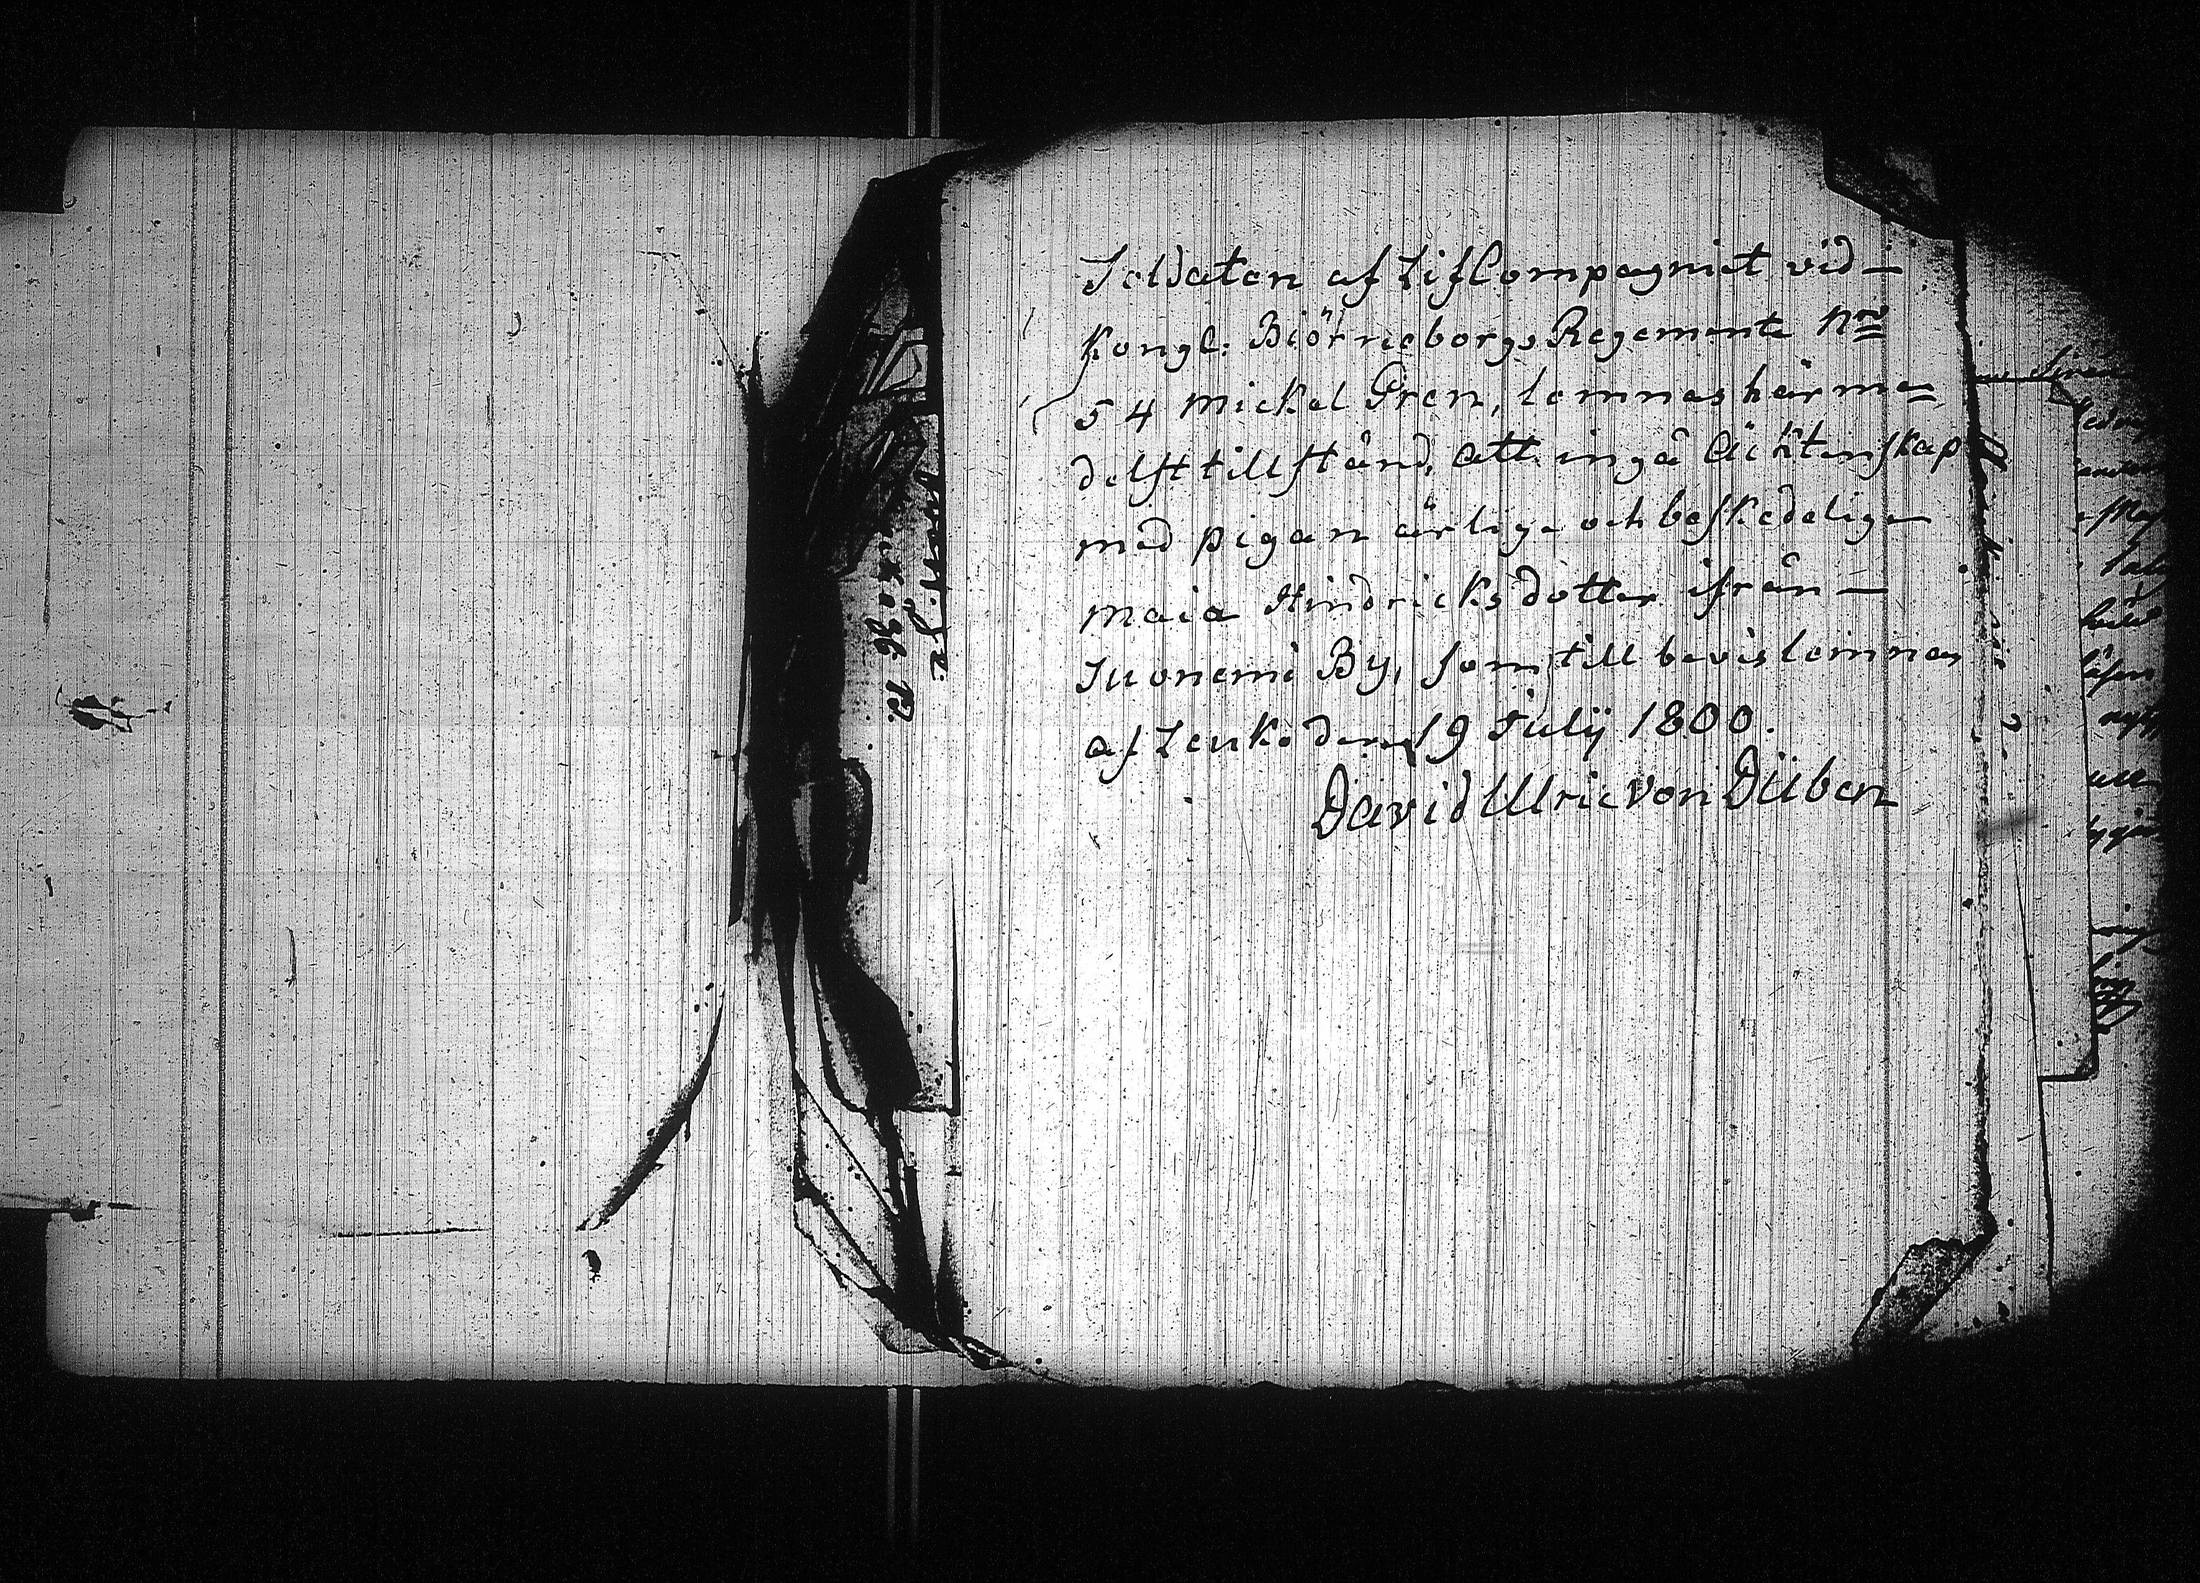 Soldaten af LifCompagniet vid —
Kongl: Biörneborgs Regemente Nro
54 Mickel Gren, lemnas härme=
delst tillstånd, att ingå Ächtenskap
med pigan ärliga och beskedeliga
Maia Hindricksdotter ifrån —
Suonemi By, som till bevis lemnas
af Lenko den 19 Julij 1800.
David Ulric von Düben